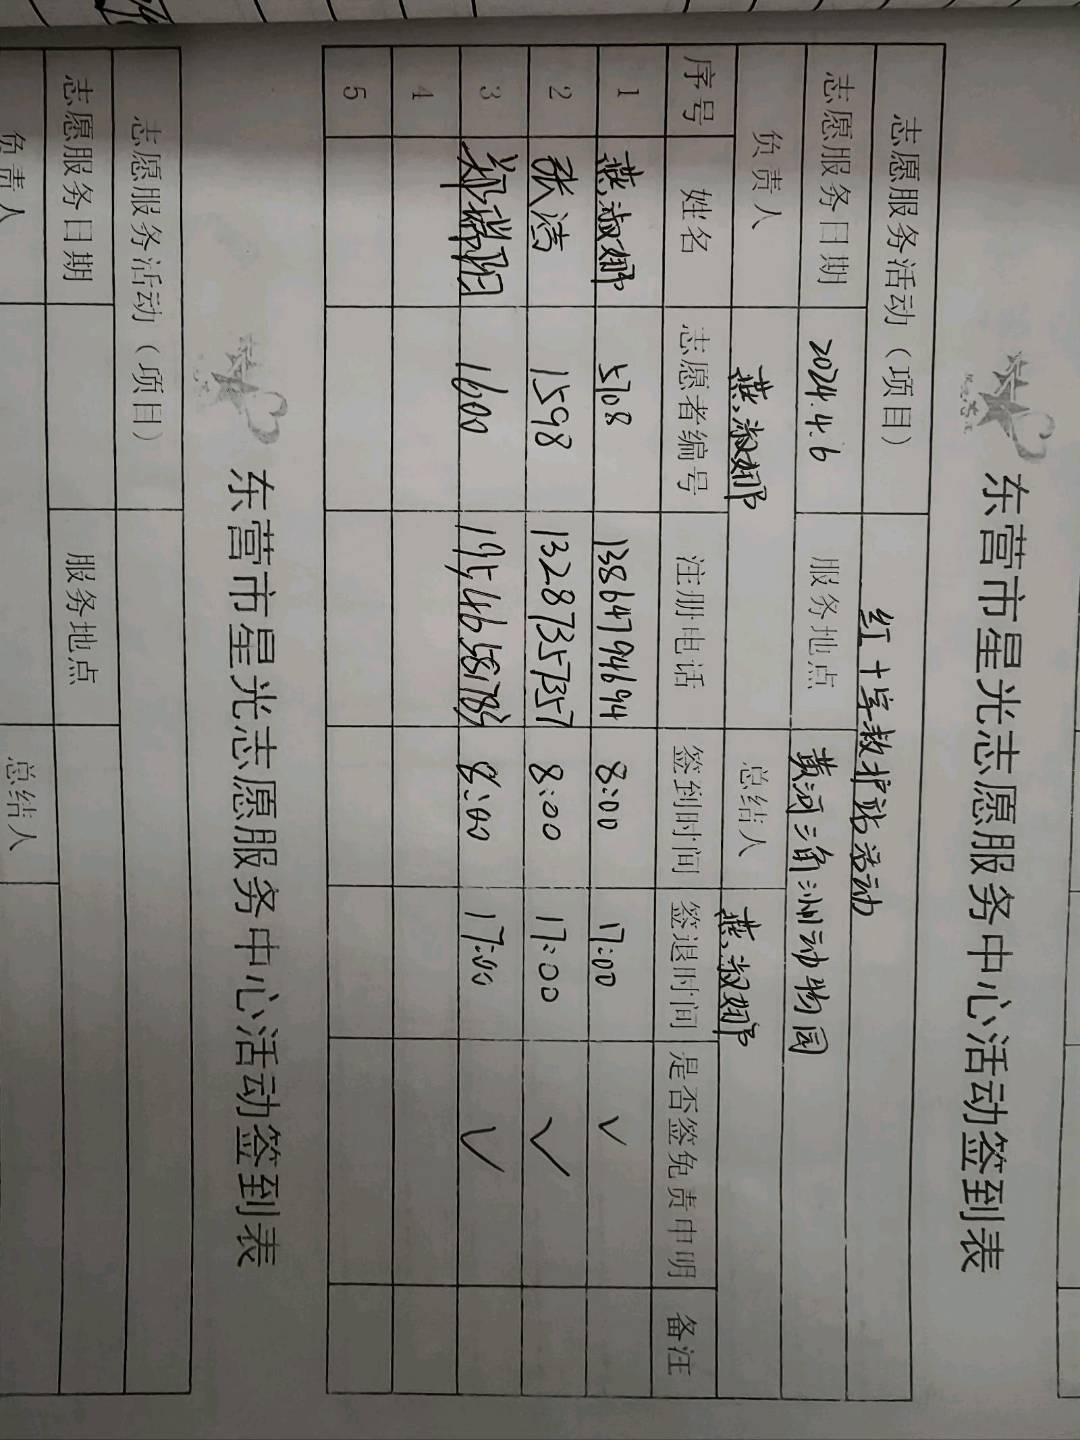 东营市星光志愿服务中心活动签到表
志愿服务活动（项目） 红十字救护站活动
志愿服务日期 2024.4.6 服务地点 黄河三角洲动物园
负责人 燕淑娜 总结人 燕淑娜
序号 姓名 志愿者编号 注册电话 签到时间 签退时间 是否签免责申明 备注
1 燕淑娜 5708 13864794694 8:00 17:00 ✓
2 张洁 1598 13287357357 8:00 17:00 ✓
3 郑瑞阳 1600 19546581783 8:00 17:00 ✓
4
5
东营市星光志愿服务中心活动签到表
志愿服务活动（项目）
志愿服务日期 服务地点
负责人 总结人